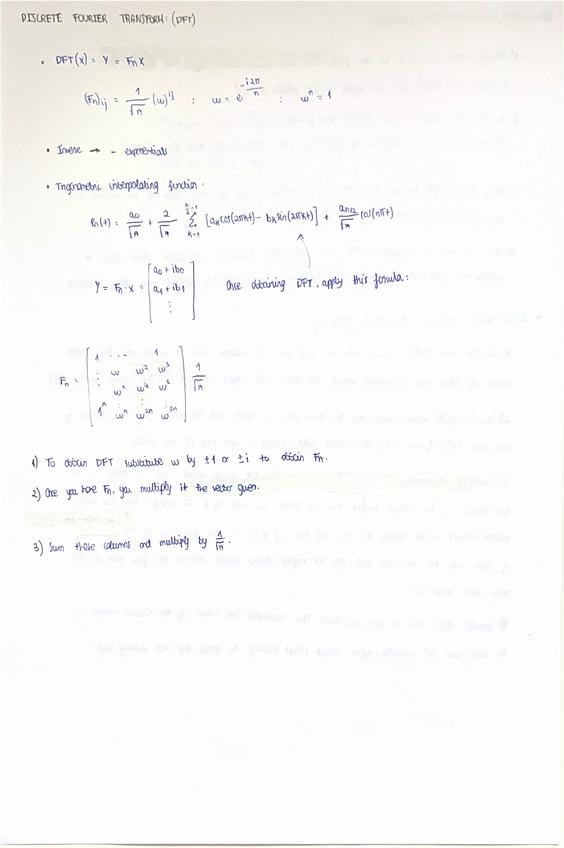 DISCRETE FOURIER TRANSFORM: (DFT)
• DFT(x) = Y = Fn X
(Fn)ij = 1/√n (w)^ij ; w = e^(-i2π/n) ; w^n = 1
• Inverse → - exponentials
• Trigonometric interpolating function:
Pn(t) = a0/√n + 2/√n Σ_{k=1}^{n/2-1} [ak cos(2πkt) - bk sin(2πkt)] + an/2/√n cos(nπt)
Y = Fn · x = [a0 + ib0
a1 + ib1
⋮]
Once obtaining DFT, apply this formula:
Fn = [1 ... 1
⋮ w w² w³
⋮ w² w⁴ w⁶
1^n w^n w^2n w^3n] 1/√n
1) To obtain DFT substitute w by ±1 or ±i to obtain Fn.
2) Once you have Fn, you multiply it the vector given.
3) Sum these columns and multiply by 1/√n.